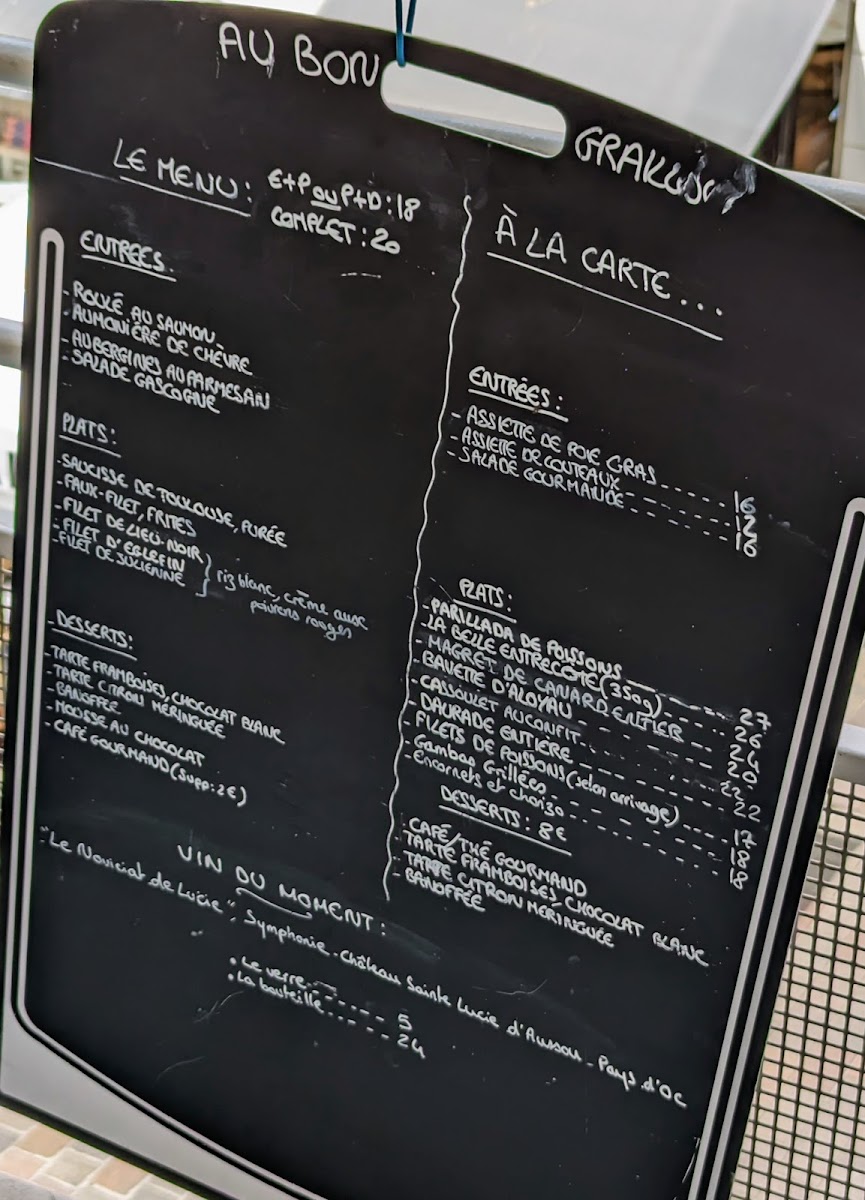 AU BON
LE MENU: E+P ou P+D: 18
COMPLET: 20
ENTREES.
- ROULÉ AU SAUMON
- AUMONIÈRE DE CHÈVRE
- AUBERGINES AU PARMESAN
- SALADE GASCOGNE
PLATS:
- SAUCISSE DE TOULOUSE, PURÉE
- FAUX-FILET, FRITES
- FILET DE LIEU NOIR
- FILET D'EGLEFIN } riz blanc, crème aux
- FILET DE JULIENNE poivrons rouges
- DESSERTS:
- TARTE FRAMBOISES, CHOCOLAT BLANC
- TARTE CITRON MERINGUÉE
- BANOFFEE
- MOUSSE AU CHOCOLAT
- CAFÉ GOURMAND (supp: 2€)
À LA CARTE...
ENTRÉES:
- ASSIETTE DE FOIE GRAS ------ 16
- ASSIETTE DE COUTEAUX ------ 12
- SALADE GOURMANDE ------ 16
PLATS:
- PARILLADA DE POISSONS ------ 27
- LA BELLE ENTRECÔTE (350g) ------ 26
- MAGRET DE CANARD ENTIER ------ 24
- BAVETTE D'ALOYAU ------ 20
- CASSOULET AU CONFIT ------ 22
- DAURADE ENTIERE ------ 22
- FILETS DE POISSONS (selon arrivage) ------ 17
- Gambas Grillées ------ 18
- Encornets et chorizo ------ 18
DESSERTS: 8€
- CAFÉ/THÉ GOURMAND
- TARTE FRAMBOISES, CHOCOLAT BLANC
- TARTE CITRON MERINGUÉE
- BANOFFÉE
VIN DU MOMENT:
"Le Noviciat de Lucie", Symphonie - Château Sainte Lucie d'Aussou - Pays d'OC
• Le verre ------ 5
• La bouteille ------ 24